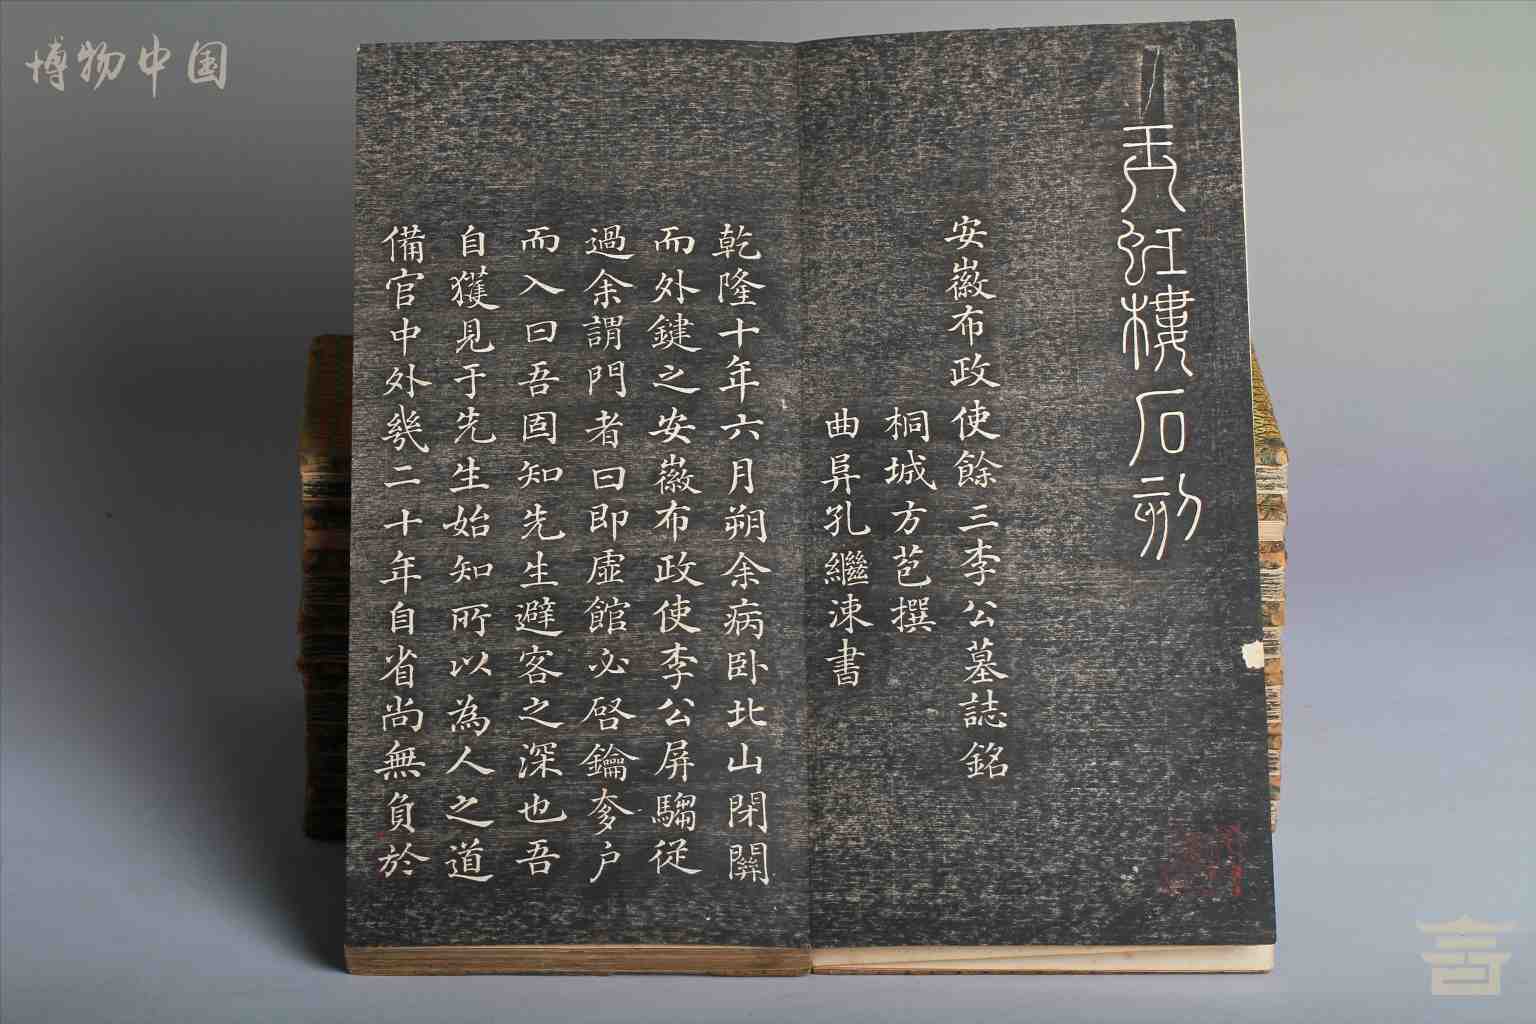 博物中国
玉虹樓石刻
安徽布政使餘三李公墓誌銘
桐城方苞撰
曲阜孔繼涑書
乾隆十年六月朔余病卧北山閉關
而外鍵之安徽布政使李公屏騶從
過余謂門者曰即虛館必啓鑰奓户
而入曰吾固知先生避客之深也吾
自獲見于先生始知所以為人之道
備官中外幾二十年自省尚無負於